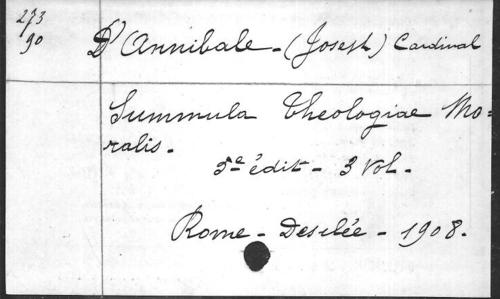 273
90
D'Annibale - (Joseph) Cardinal
Summula Theologiae Mo=
ralis.
5e édit - 3 Vol.
Rome - Desclée - 1908.